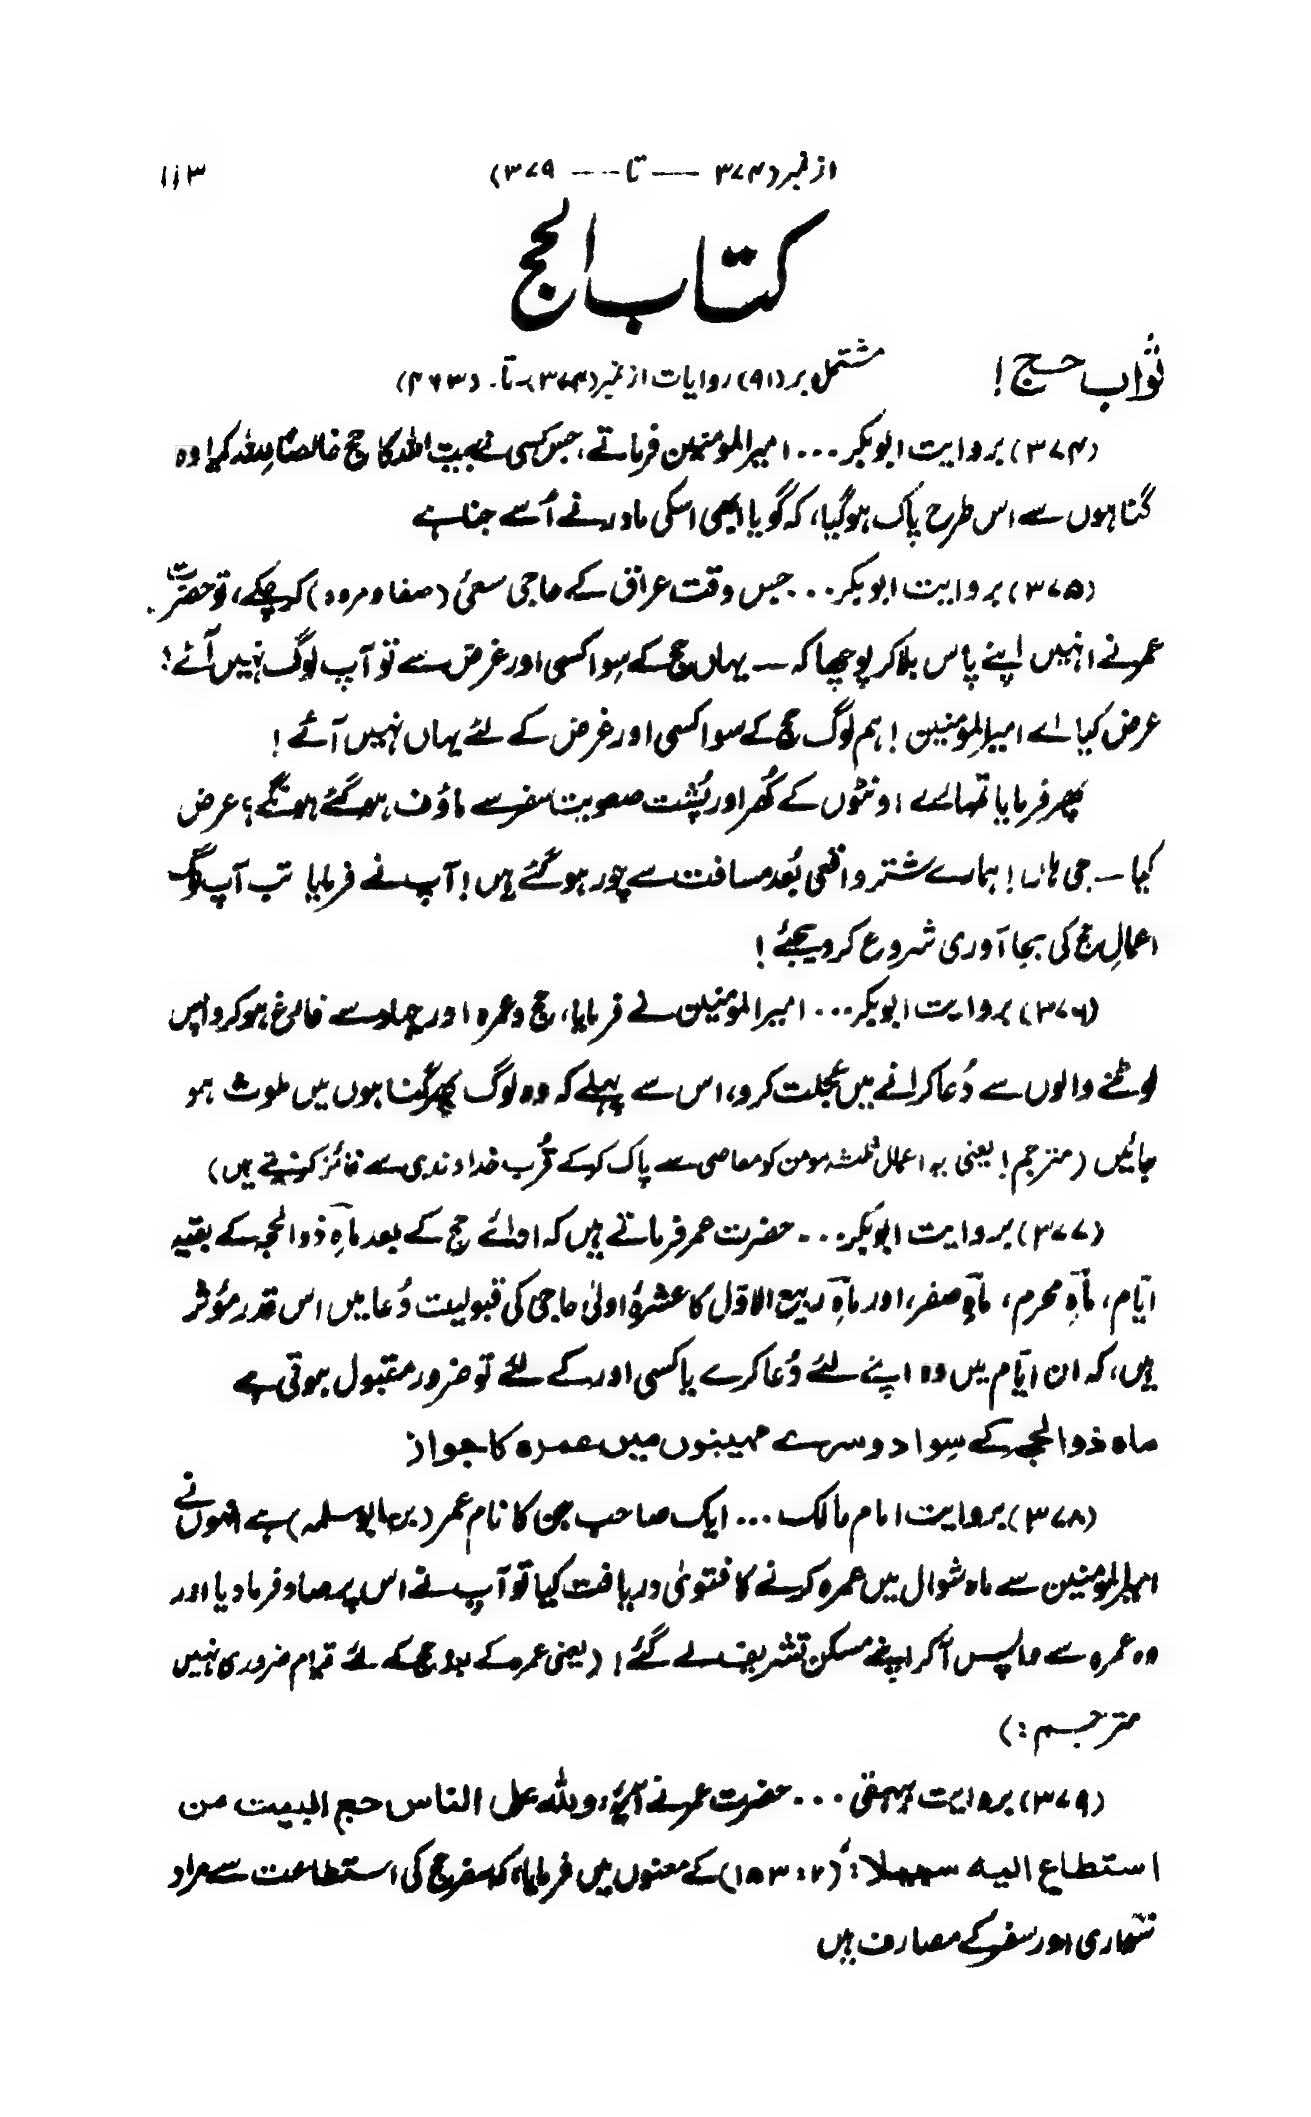 از نمبر (۳۷۴ —— تا --- ۳۷۹) ۱۱۳
کتاب الحج
ثواب حج !
مشتمل بر (۹۱) روایات از نمبر (۳۷۴)-تا- (۴۶۳)
(۳۷۴) بروایت ابوبکر ... امیرالمؤمنین فرماتے، جس کسی نے بیت اللہ کا حج خالصًا للہ کیا وہ
گناہوں سے اس طرح پاک ہوگیا، کہ گویا ابھی اسکی مادر نے اُسے جنا ہے
(۳۷۵) بروایت ابوبکر ... جس وقت عراق کے حاجی سعئ (صفا و مروہ) کرچکے، تو حضرت
عمر نے انہیں اپنے پاس بلا کر پوچھا کہ — یہاں حج کے سوا کسی اور غرض سے تو آپ لوگ نہیں آئے؟
عرض کیا اے امیرالمؤمنین ! ہم لوگ حج کے سوا کسی اور غرض کے لئے یہاں نہیں آئے !
پھر فرمایا تمہارے اونٹوں کے کُھر اور پُشت صعوبت سفر سے ماؤف ہو گئے ہونگے؟ عرض
کیا — جی ہاں ! ہمارے شتر واقعی بُعد مسافت سے چور ہو گئے ہیں! آپ نے فرمایا تب آپ لوگ
اعمالِ حج کی بجا آوری شروع کر دیجئے !
(۳۷۶) بروایت ابوبکر ... امیرالمؤمنین نے فرمایا، حج و عمرہ اور جہاد سے فارغ ہو کر واپس
لوٹنے والوں سے دُعا کرانے میں عجلت کرو، اس سے پہلے کہ وہ لوگ پھر گناہوں میں ملوث ہو
جائیں (مترجم! یعنی یہ اعمال ثلثہ مومن کو معاصی سے پاک کرکے قُرب خداوندی سے فائز کر دیتے ہیں)
(۳۷۷) بروایت ابوبکر ... حضرت عمر فرماتے ہیں کہ ادائے حج کے بعد ماہِ ذوالحجہ کے بقیہ
ایّام، ماہِ محرم، ماہِ صفر، اور ماہِ ربیع الاوّل کا عشرۂ اولیٰ حاجی کی قبولیت دُعا میں اس قدر مؤثر
ہیں، کہ ان ایّام میں وہ اپنے لئے دُعا کرے یا کسی اور کے لئے تو ضرور مقبول ہوتی ہے
ماہ ذوالحجہ کے سِوا دوسرے مہینوں میں عمرہ کا جواز
(۳۷۸) بروایت امام مالک ... ایک صاحب جن کا نام عمر (بن ابو سلمہ) ہے انہوں نے
امیرالمؤمنین سے ماہ شوال میں عمرہ کرنے کا فتویٰ دریافت کیا تو آپ نے اس پر صاد فرما دیا اور
وہ عمرہ سے واپس آ کر اپنے مسکن تشریف لے گئے ! (یعنی عمرہ کے بعد حج کے لئے قیام ضروری نہیں
مترجم :)
(۳۷۹) بروایت بیہقی ... حضرت عمر نے آیۂ، وللہ علی الناس حج البیت من
استطاع الیہ سبیلا: (۲ : ۱۸۳) کے معنوں میں فرمایا، کہ سفر حج کی استطاعت سے مراد
سواری اور سفر کے مصارف ہیں